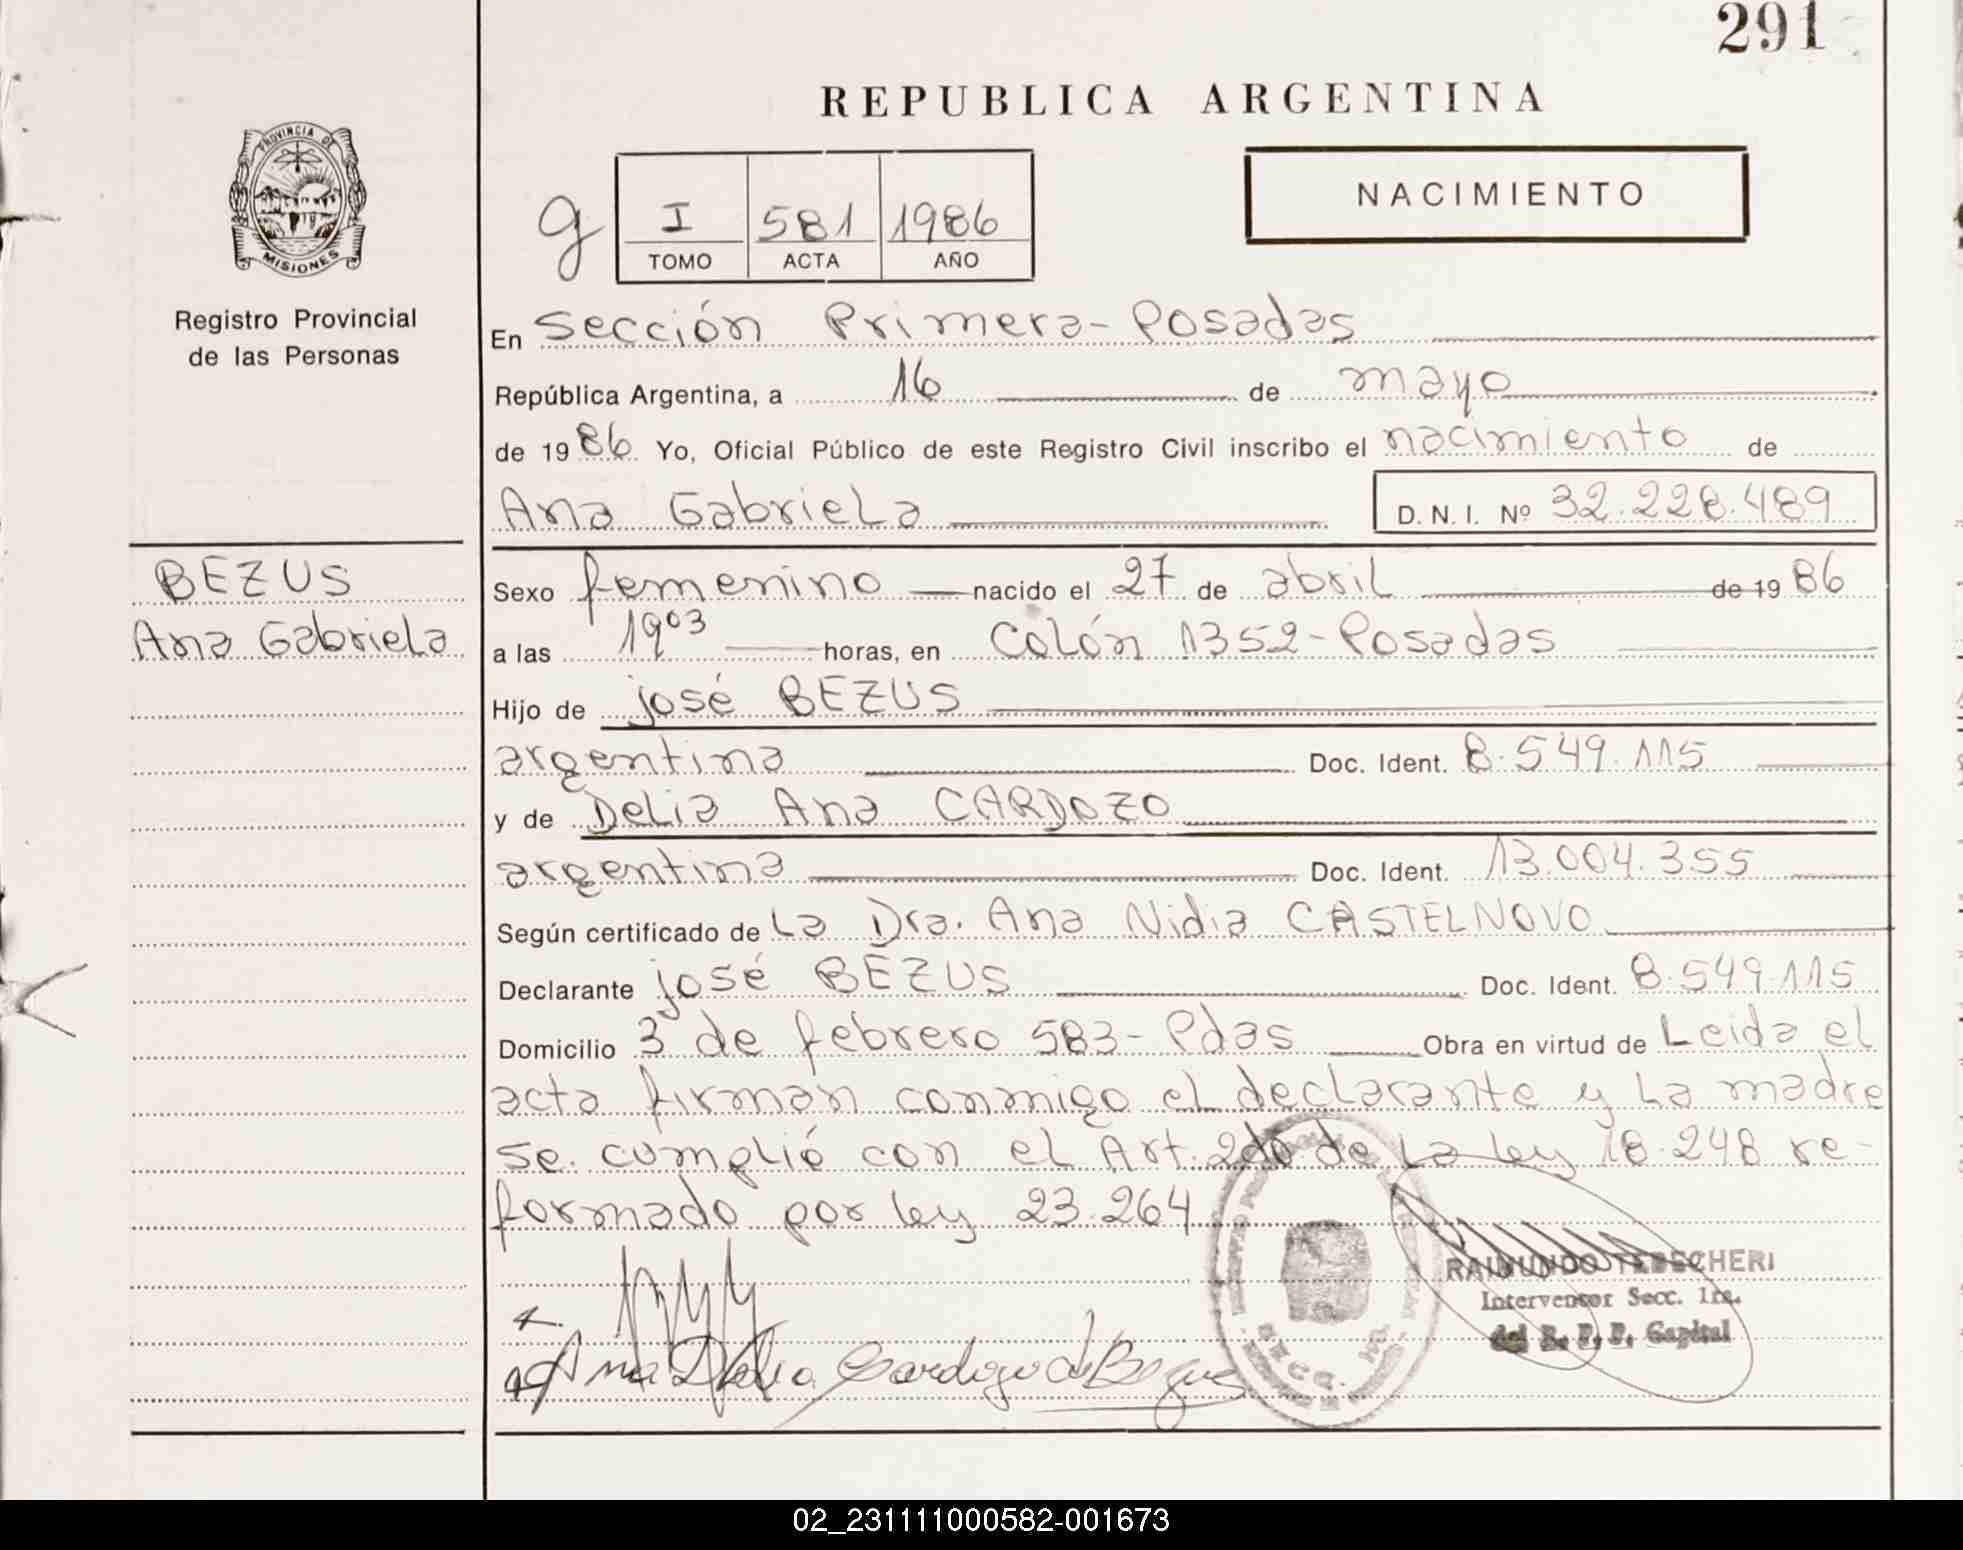 291
REPUBLICA ARGENTINA
PROVINCIA DE
MISIONES
Registro Provincial
de las Personas
g
I 581 1986
TOMO ACTA AÑO
NACIMIENTO
En Sección Primera-Posadas
República Argentina, a 16 de mayo
de 1986 Yo, Oficial Público de este Registro Civil inscribo el nacimiento de
Ana Gabriela D. N. I. Nº 32.228.489
BEZUS
Ana Gabriela
Sexo femenino nacido el 27 de abril de 1986
a las 19º3 horas, en Colón 1352-Posadas
Hijo de josé BEZUS
argentina Doc. Ident. 8.549.115
y de Delia Ana CARDOZO
argentina Doc. Ident. 13.004.355
Según certificado de La Dra. Ana Nidia CASTELNOVO
Declarante josé BEZUS Doc. Ident. 8.549.115
Domicilio 3 de febrero 583-Pdas Obra en virtud de Leida el
acta firman conmigo el declarante y La madre
se. cumplió con el Art. 2do de La ley 18.248 re-
formado por ley 23.264
RAIMUNDO TEBECHERI
Interventor Secc. 1ra.
del R. P. P. Capital
Ana Delia Cardozo de Bezus
02_231111000582-001673